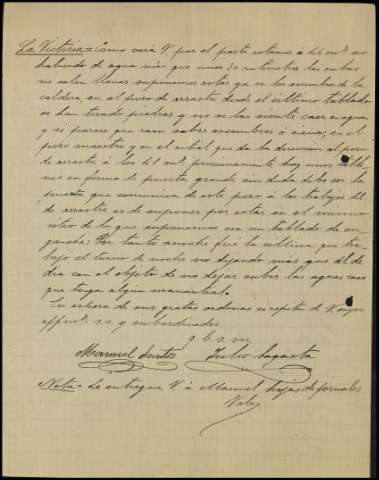 La Victoria = Como verá V. por el parte estamos á 46 m. no
habiendo de agua más que unos 30 centímetros las cubas
no salen llenas suponemos estar ya en los escombros de la
caldera, en el pozo de arrastre desde el último tablado
se han tirado piedras y no se las siente caer en agua
y si parece que caen sobre escombros ó cieno; en el
pozo maestro y en el cabal que da la dirección al pozo
de arrastre á los 41 m. próximamente hay unos tablo-
nes en forma de puerta grande sin duda deben ser la
puerta que comunica de este pozo á los trabajos del
de arrastre es de suponer por estar en el mismo
sitio de lo que suponemos sea un tablado de en-
ganche: Por tanto anoche fué la última que tra-
bajó el turno de noche no dejando más que el de
día con el objeto de no dejar subir las aguas caso
que tenga algún manantial.
En espera de sus gratas ordenes se repiten de V. suyos
affmos. s.s. y subordinados.
q b s m
Manuel Santos Julio Sagasta
Nota - La entregue V. á Manuel hojas de jornales
Vale